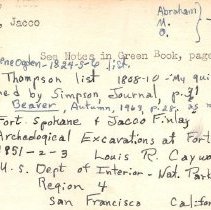 , Jacco
Abraham
M.
O.
See Notes in Green Book, page
Ogden-1824-5-6 list.
Thompson list 1808-10 - My qui
ned by Simpson Journal, p.
Beaver, Autumn, 1969, p.28. as
Fort Spokane & Jacco Finlay
Archeological Excavations at Fort
1951-2-3 Louis R. Caywo
U.S. Dept of Interior - Nat. Park
Region 4
San Francisco Califor